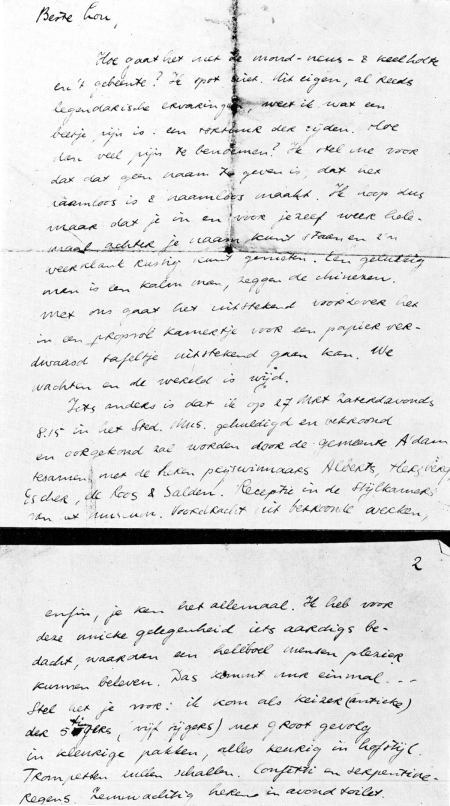 Beste Lou,
Hoe gaat het met de mond-neus- & keelholte
en 't gebeente? Ik spot niet. Uit eigen, al reeds
legendarische ervaringen, weet ik wat een
beetje pijn is: een der zijden. Hoe
dan veel pijn te benoemen? Ik stel me voor
dat dat geen naam te geven is, dat het
naamloos is & naamloos maakt. Ik hoop dus
maar dat je in en voor jezelf weer hele-
maal achter je naam kunt staan en z'n
weerklank rustig kunt genieten. Een gelukkig
man is een kalm man, zeggen de chinezen.
Met ons gaat het uitstekend voorzover het
in een propvol kamertje voor een papier ver-
dwaasd tafeltje uitstekend gaan kan. We
wachten en de wereld is wijd.
Iets anders is dat ik op 27 Mrt zaterdavonds
8.15 in het Sted. Mus. gehuldigd en bekroond
en oorgekond zal worden door de gemeente A'dam
tesamen met de heren prijswinnaars Alberts, Hertzberg,
Escher, de Roos & Salden! Receptie in de Stijlkamers
van het museum. Voordracht uit bekroonde werken,
2
enfin, je ken het allemaal. Ik heb voor
deze unieke gelegenheid iets aardigs be-
dacht, waaraan een heleboel mensen plezier
kunnen beleven. Das kommt nur einmal ...
Stel het je voor: ik kom als keizer (antieke)
der 5 (vijf tijgers) met groot gevolg
in kleurige pakken, alles keurig in hofstijl.
Trompetten zullen schallen. Confetti en serpentine-
regens. Zenuwachtig heren in avondtoilet.